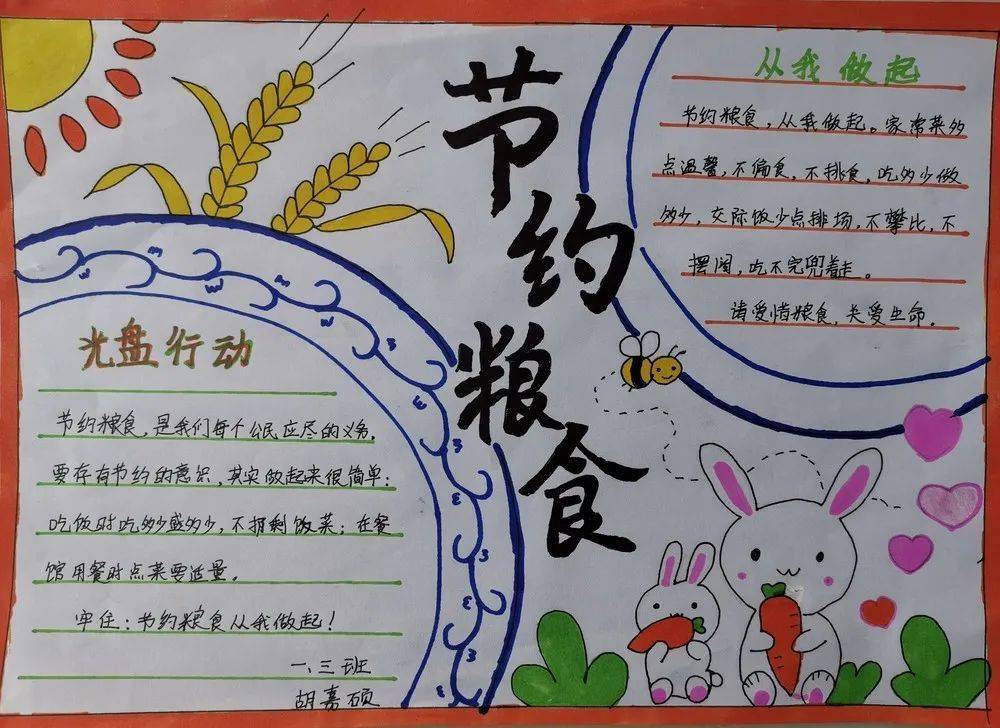 节约粮食
从我做起
节约粮食，从我做起。家常菜多
点温馨，不偏食，不挑食，吃多少做
多少，交际饭少点排场，不攀比，不
摆阔，吃不完兜着走。
请爱惜粮食，关爱生命。
光盘行动
节约粮食，是我们每个公民应尽的义务。
要存有节约的意识，其实做起来很简单：
吃饭时吃多少盛多少，不报剩饭菜；在餐
馆用餐时点菜要适量。
牢住：节约粮食从我做起！
一、三班
胡嘉硕